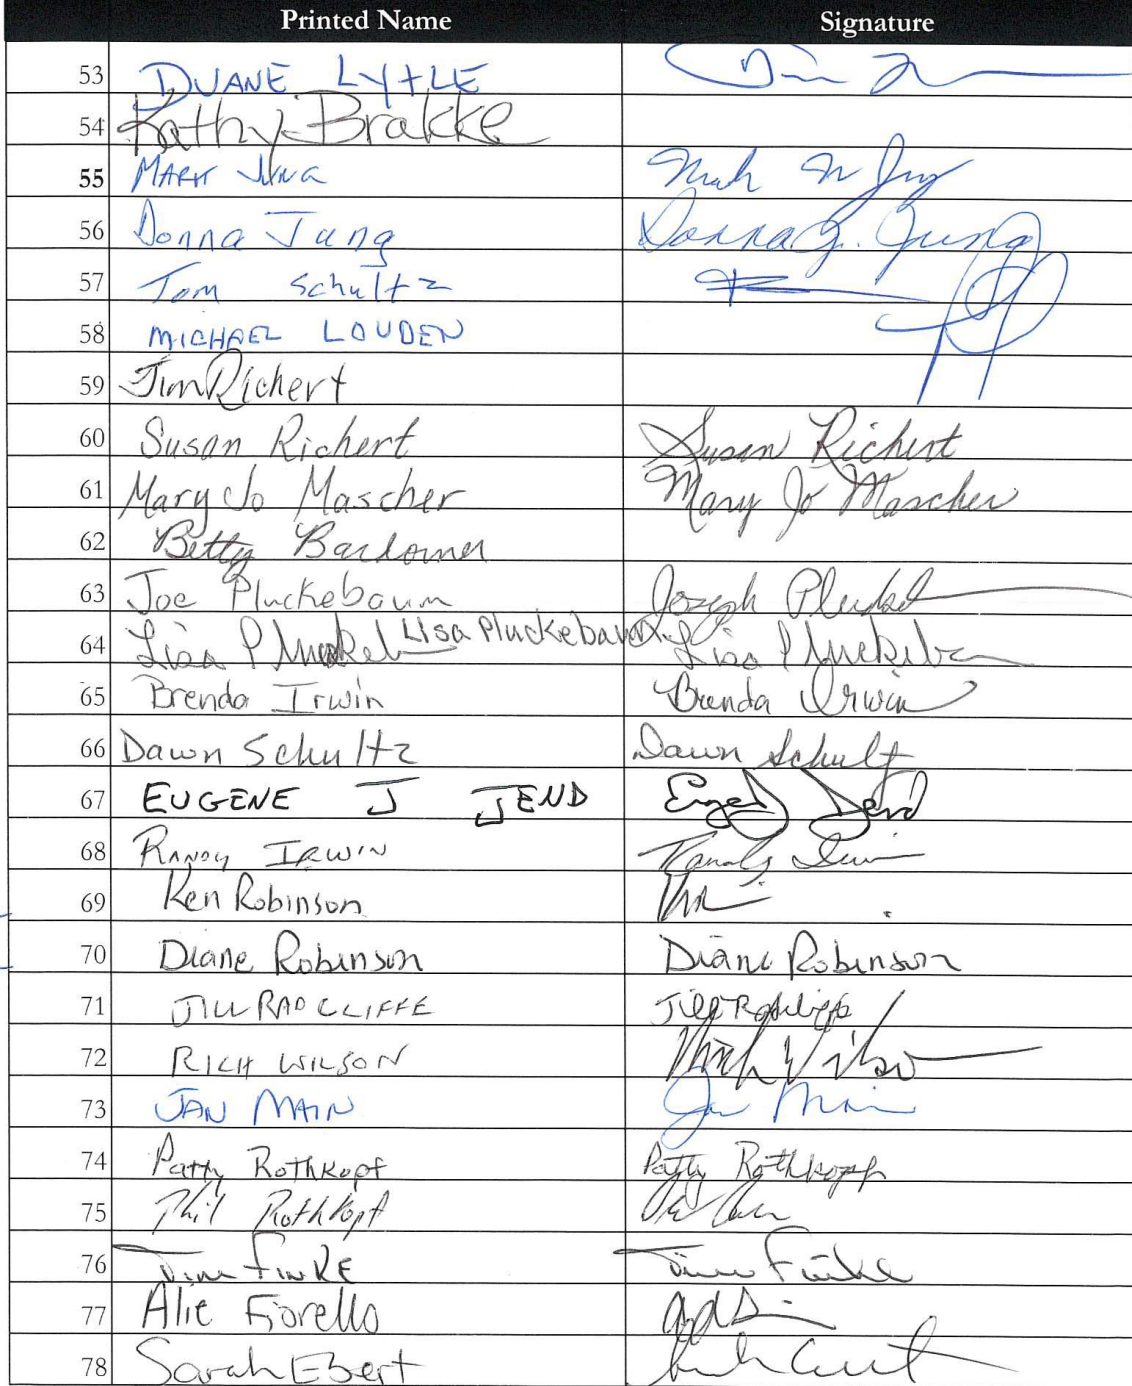 Printed Name Signature
53 DUANE LYTLE
54 Kathy Brakke
55 MARK JUNG Mark Jung
56 Donna Jung Donna J. Jung
57 Tom Schultz
58 MICHAEL LOUDEN
59 Jim Richert
60 Susan Richert Susan Richert
61 Mary Jo Mascher Mary Jo Mascher
62 Betty
63 Joe Pluckebaum Joseph
64 Lisa Pluckeb Lisa Pluckebaum Lisa Pluckeba
65 Brenda Irwin Brenda Irwin
66 Dawn Schultz Dawn Schultz
67 EUGENE J JEND
68 RANDY IRWIN
69 Ken Robinson
70 Diane Robinson Diane Robinson
71 JILL RADCLIFFE Jill Radcliffe
72 RICH WILSON Rich Wilson
73 JAN MAIN Jan Main
74 Patty Rothkopf Patty Rothkopf
75 Phil Rothkopf
76 Jim FINKE Jim Finke
77 Alie Fiorello
78 Sarah Ebert